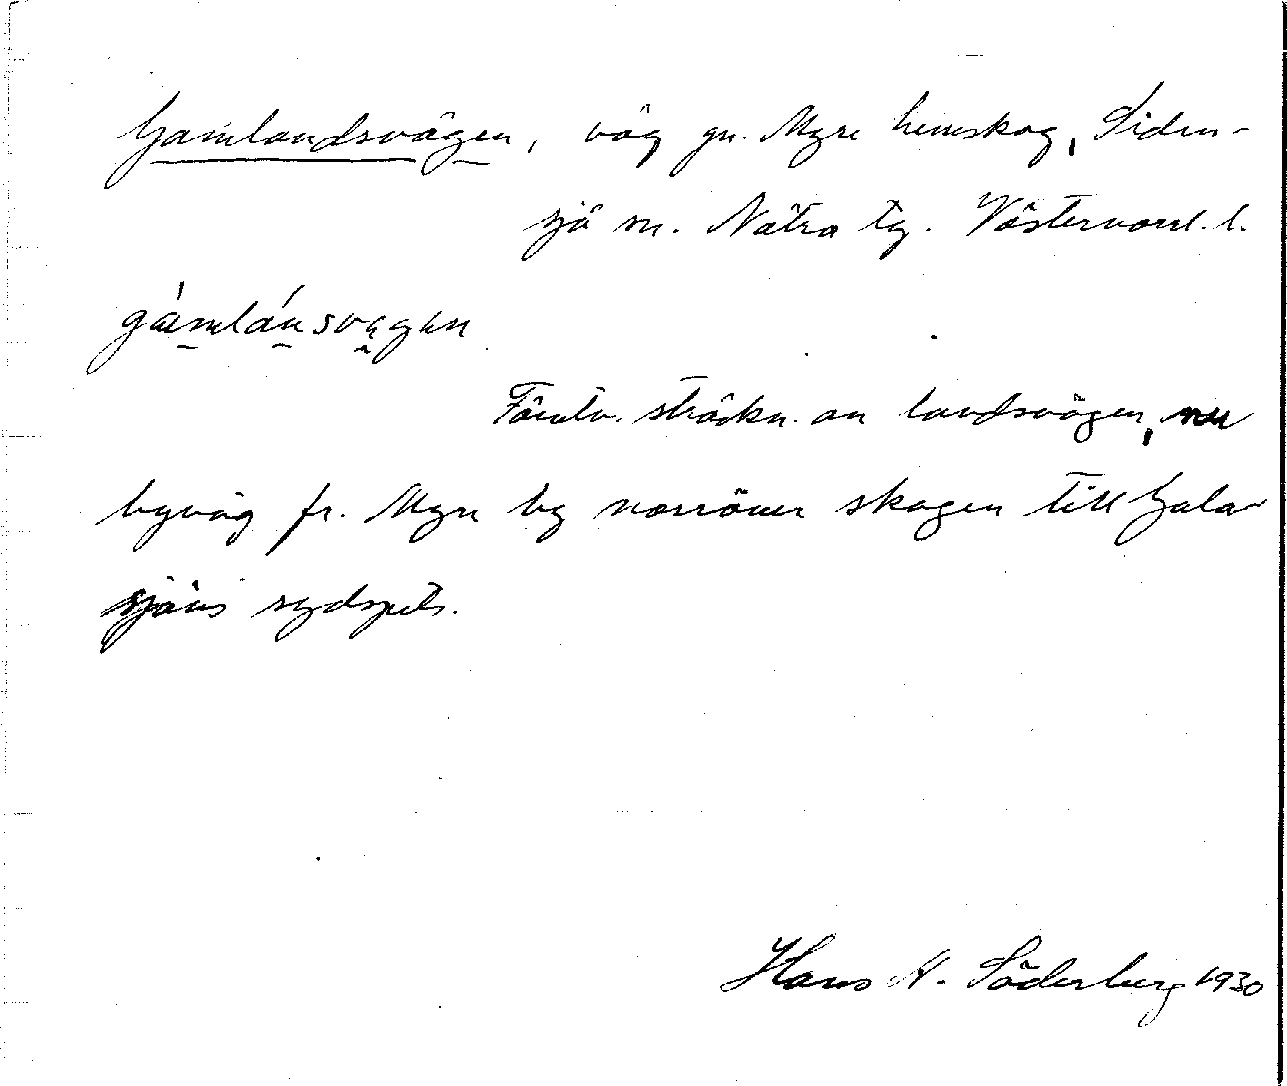 Gamlandsvägen, väg gn. Myre hemskog, Siden-
sjö sn. Nätra tg. Västernorrl. l.
gámlánsvagen
sträckn. av landsvägen, nu
byväg fr. Myre by norröver skogen till Gala-
sjöns sydspets.
Hans N. Söderberg 1930